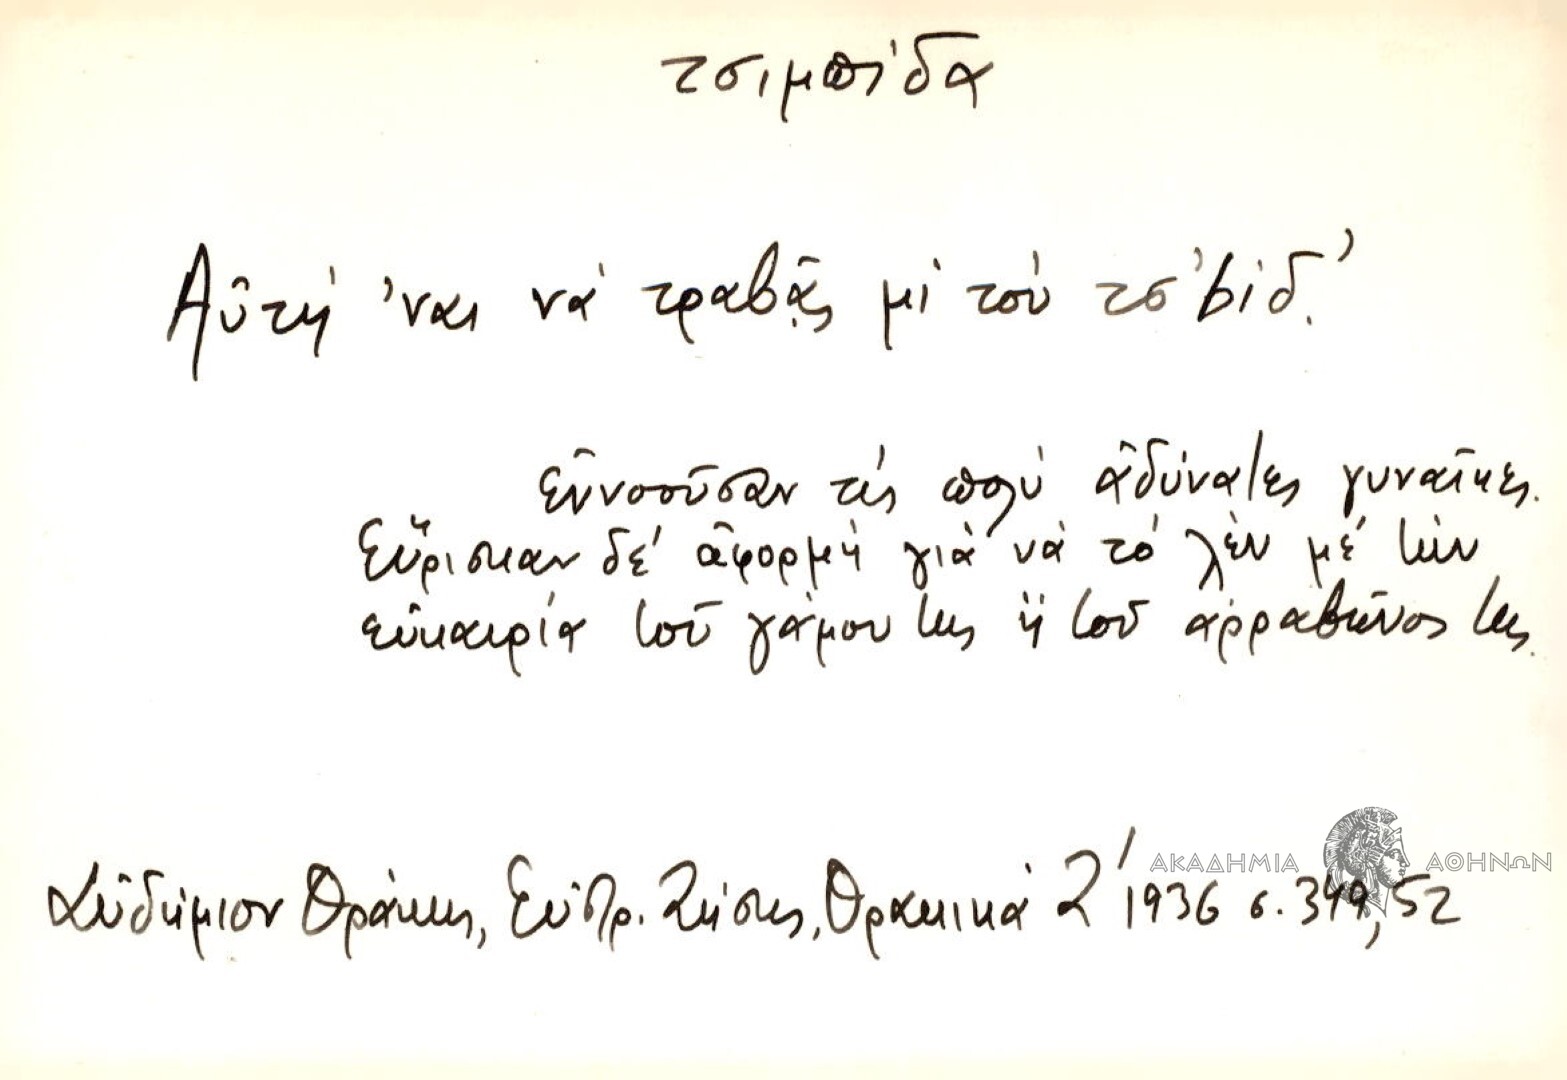 τσιμπίδα
Αὐτή 'ναι νά τραβᾷς μί τού τσ'βίδ'.
εὐνοοῦσαν τίς πολύ ἀδύνατες γυναῖκες.
Εὕρισκαν δέ ἀφορμή γιά νά τό λέν μέ τήν
εὐκαιρία τοῦ γάμου της ἤ τοῦ ἀρραβῶνος της.
Διδυμότειχον Θράκης, Εὐστρ. Ζήσης, Θρακικά Ζ' 1936 σ. 349, 52
ΑΚΑΔΗΜΙΑ ΑΘΗΝΩΝ